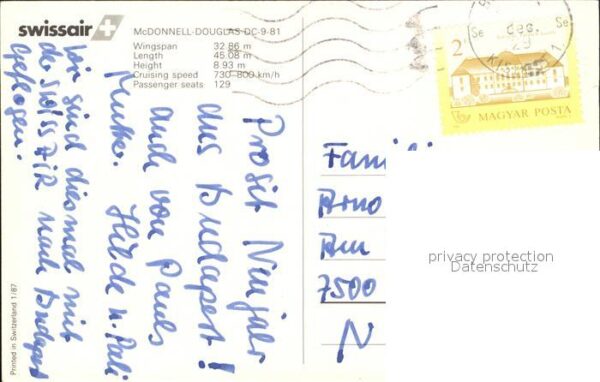 swissair
McDONNELL-DOUGLAS DC-9-81
Wingspan 32.86 m
Length 45.08 m
Height 8.93 m
Cruising speed 730-800 km/h
Passenger seats 129
Prosit Neujahr
aus Budapest!
auch von Pauls
Mutter. Hilde u. Pali
Wir sind diesmal mit
der SWISSAIR nach Budapest
geflogen.
Printed in Switzerland 1/87
2
MAGYAR POSTA
dec.
29
Se
Se
Famili
Arno
7500
privacy protection
Datenschutz